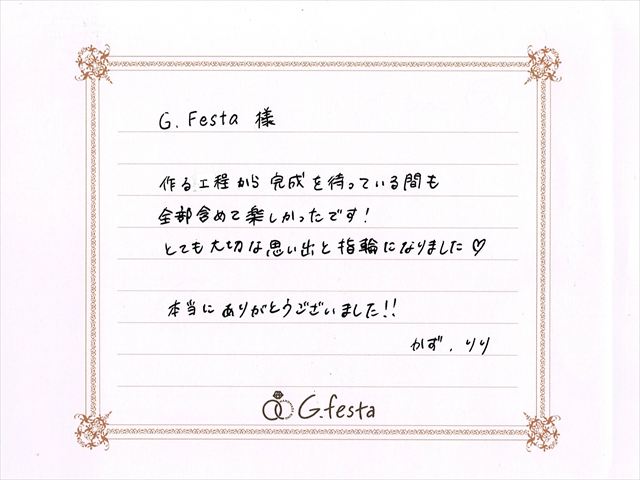 G.Festa 様
作る工程から完成を待っている間も
全部含めて楽しかったです!
とても大切な思い出と指輪になりました♡
本当にありがとうございました!!
かず.りり
G.festa